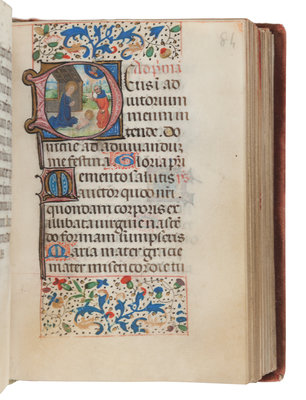 84
Ad prima
Deus i ad
iutorium
meum in
tende. Do
mine ad adiuuandũ
me festina Gloria pri
Memento salutis
auctor quo nri.
quondam corporis ex
illibata uirgine nasce
do formam sumpseris
Maria mater gracie
mater misericordie tu